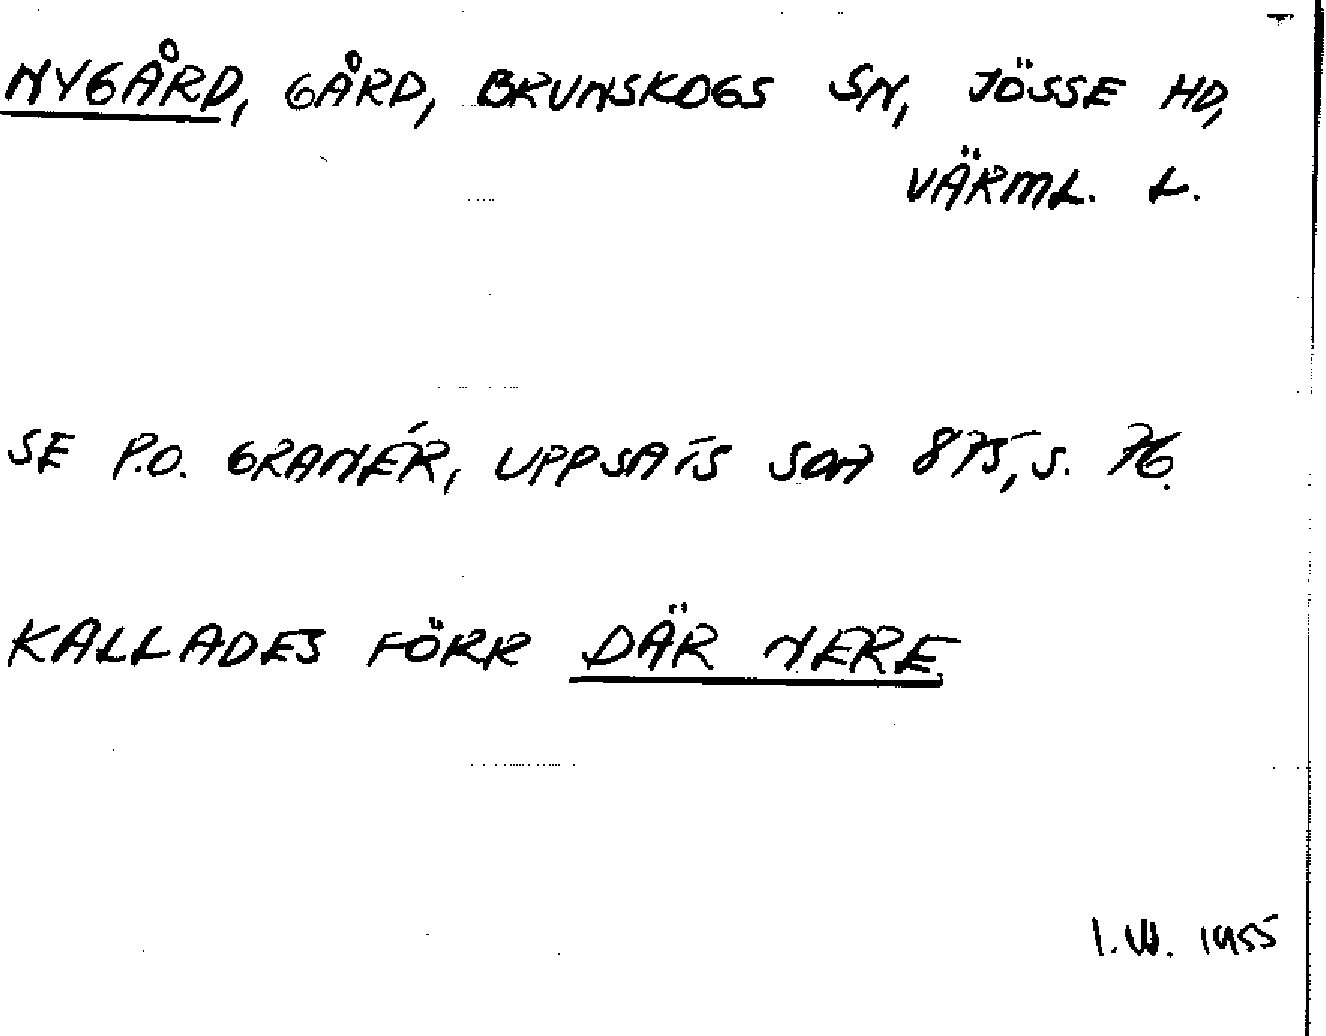 NYGÅRD, GÅRD, BRUNSKOGS SN, JÖSSE HD,
VÄRML. L.
SE P.O. GRANÉR, UPPSATS SOA 875, S. 76.
KALLADES FÖRR DÄR NERE
I.W. 1955